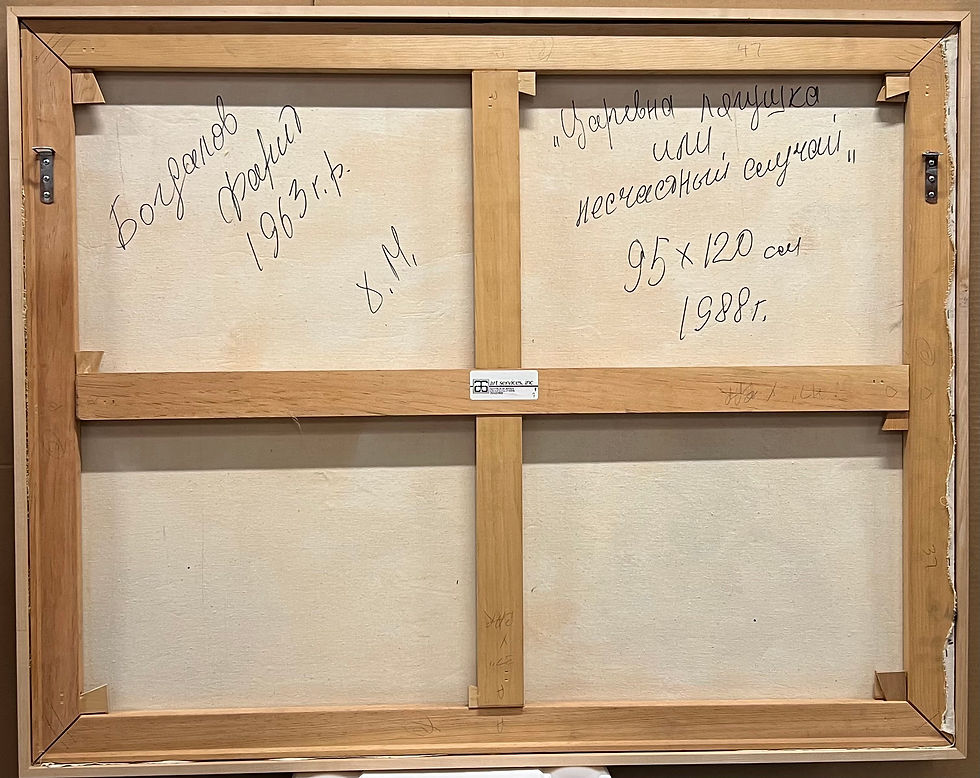 Богданов
Фарид
1963 г.р.
х.м.
„Царевна лягушка
или
несчастный случай"
95 x 120 см
1988 г.
art services, inc
47
37